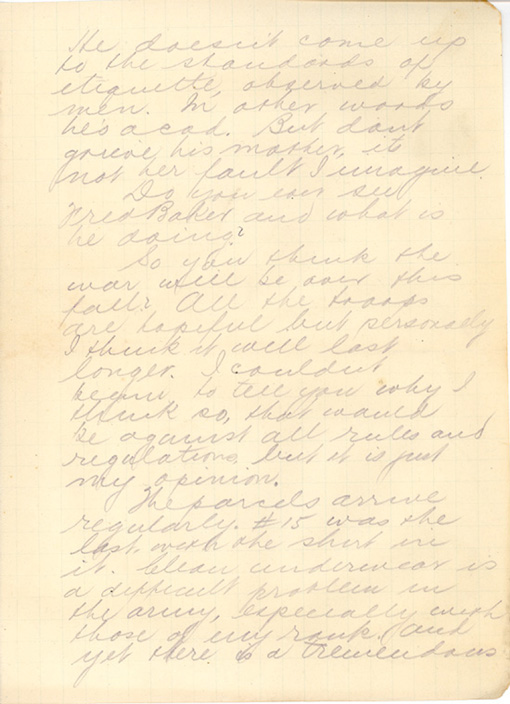 He doesn't come up
to the standards of
etiquette observed by
men. In other words
he's a cad. But don't
grieve his mother, it's
not her fault I imagine.
Do you ever see
Fred Baker and what is
he doing?
So you think the
war will be over this
fall? All the troops
are hopeful but personally
I think it will last
longer. I couldn't
begin to tell you why I
think so, that would
be against all rules and
regulations, but it is just
my opinion.
The parcels arrive
regularly. #15 was the
last with the shirt in
it. Clean underwear is
a difficult problem in
the army, especially with
those of my rank. (And
yet there is a tremendous